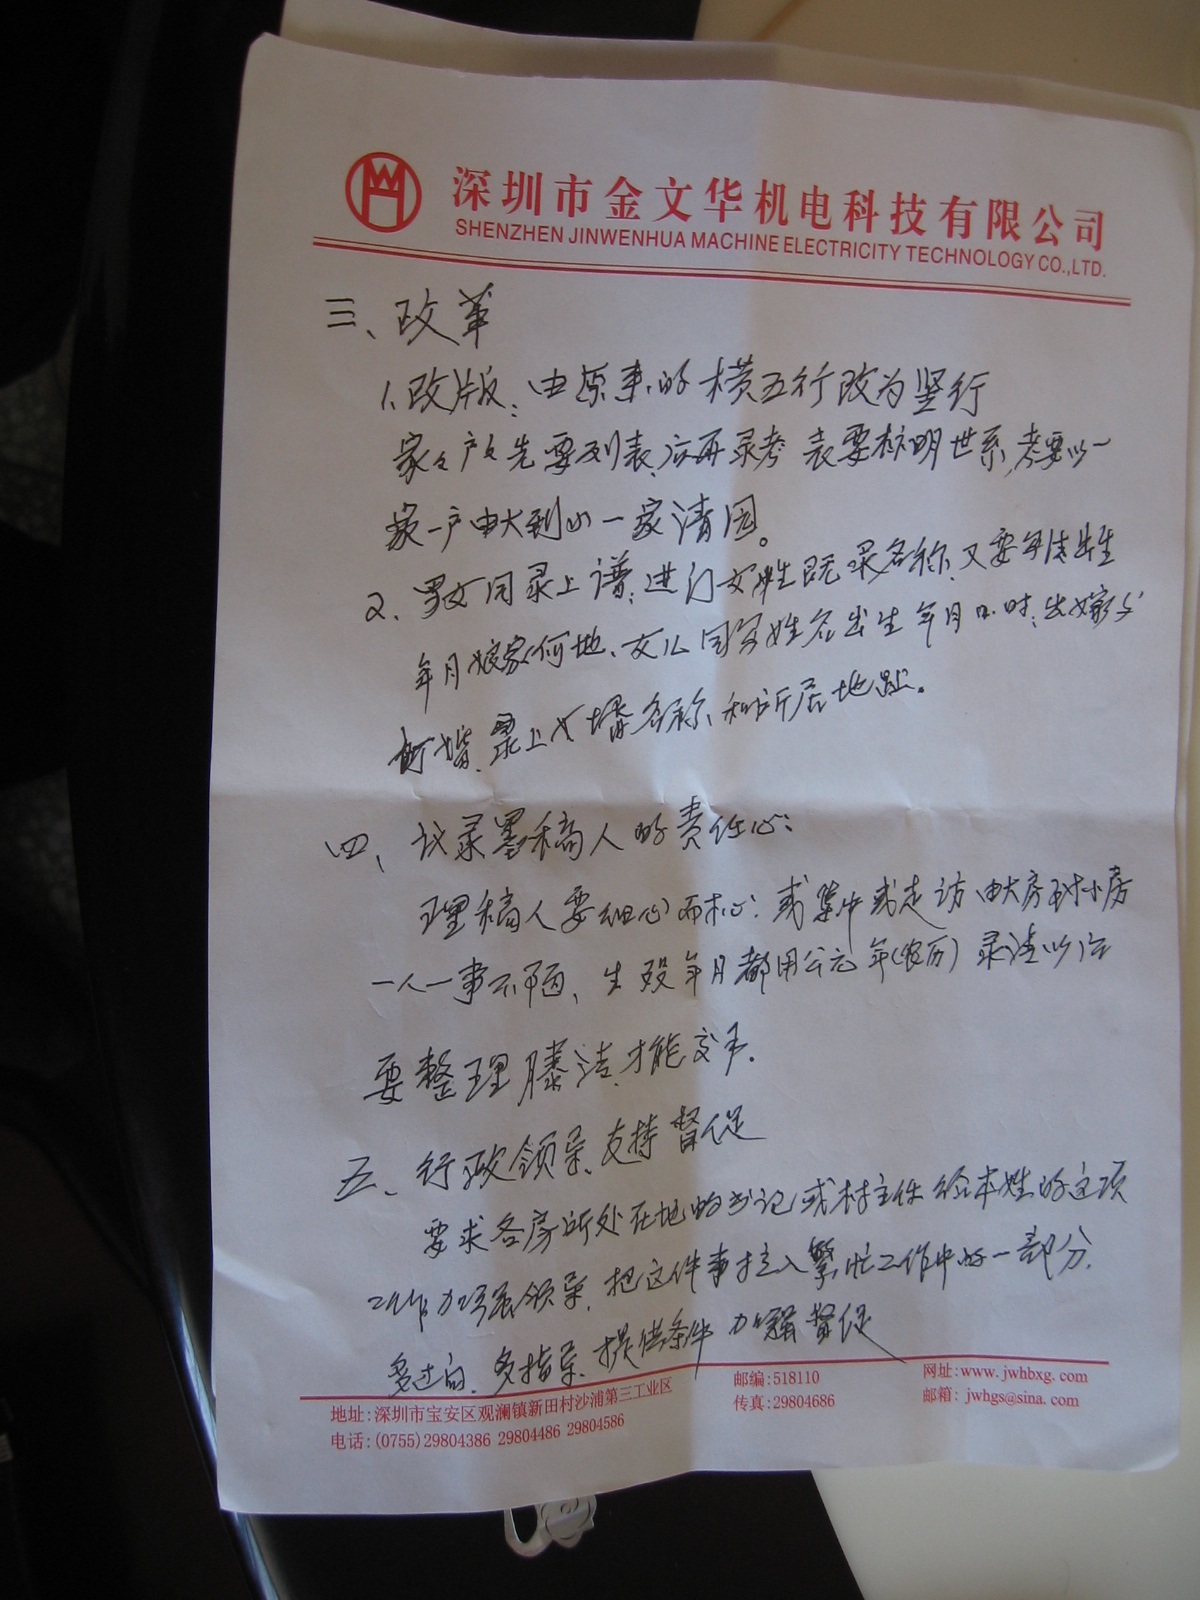 深圳市金文华机电科技有限公司
SHENZHEN JINWENHUA MACHINE ELECTRICITY TECHNOLOGY CO.,LTD.
三、改革
1.改版：由原来的横五行改为竖行
家々户々先要列表，后再录考 表要标明世系，考要以一
家一户由大到小一家清园。
2、男女同录上谱：进门女性既录名称，又要写清出生
年月娘家何地、女儿同写姓名出生年月日时；出嫁
婿、录上女婿名称、和所居地址。
四、议录墨稿人的责任心：
理稿人要细心而耐心：或集中或走访 由大房到小房
一人一事不漏、生殁年月都用公元年(农历)录清以后
要整理誊清，才能交手.
五、行政领导、支持督促
要求各房所处在地的书记或村主任给本姓的这项
工作加强领导，把这件事挂入繁忙工作中的一部分.
多过问、多指导、提供条件 加强督促
地址:深圳市宝安区观澜镇新田村沙浦第三工业区
邮编:518110
网址:www.jwhbxg.com
电话:(0755)29804386 29804486 29804586
传真:29804686
邮箱: jwhgs@sina.com